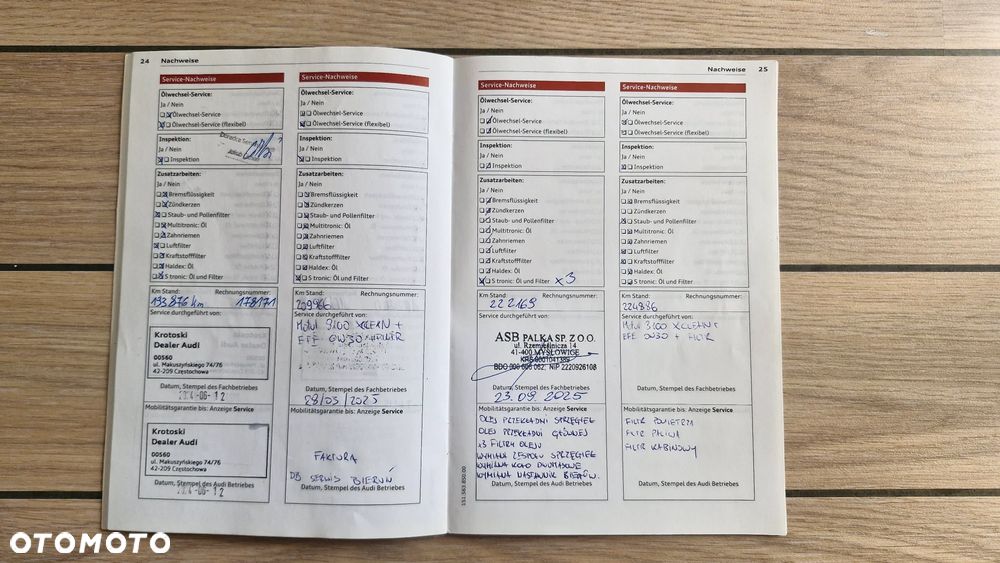 24 Nachweise
Service-Nachweise
Ölwechsel-Service:
Ja / Nein
Ölwechsel-Service
Ölwechsel-Service (flexibel)
Inspektion:
Ja / Nein
Inspektion
Zusatzarbeiten:
Ja / Nein
Bremsflüssigkeit
Zündkerzen
Staub- und Pollenfilter
Multitronic: Öl
Zahnriemen
Luftfilter
Kraftstofffilter
Haldex: Öl
S tronic: Öl und Filter
Km Stand: Rechnungsnummer:
193 876 km 178171
Service durchgeführt von:
Krotoski
Dealer Audi
00560
ul. Makuszyńskiego 74/76
42-209 Częstochowa
Datum, Stempel des Fachbetriebes
2024-06-12
Mobilitätsgarantie bis: Anzeige Service
Krotoski
Dealer Audi
00560
ul. Makuszyńskiego 74/76
42-209 Częstochowa
Datum, Stempel des Audi Betriebes
2024-06-12
Service-Nachweise
Ölwechsel-Service:
Ja / Nein
Ölwechsel-Service
Ölwechsel-Service (flexibel)
Inspektion:
Ja / Nein
Inspektion
Zusatzarbeiten:
Ja / Nein
Bremsflüssigkeit
Zündkerzen
Staub- und Pollenfilter
Multitronic: Öl
Zahnriemen
Luftfilter
Kraftstofffilter
Haldex: Öl
S tronic: Öl und Filter
Km Stand: Rechnungsnummer:
209986
Service durchgeführt von:
Motul 8100 XCLEAN +
EFE 0W30 + FILTR
Datum, Stempel des Fachbetriebes
28/03/2025
Mobilitätsgarantie bis: Anzeige Service
FAKTURA
DB SERWIS BIERUŃ
Datum, Stempel des Audi Betriebes
Nachweise 25
Service-Nachweise
Ölwechsel-Service:
Ja / Nein
Ölwechsel-Service
Ölwechsel-Service (flexibel)
Inspektion:
Ja / Nein
Inspektion
Zusatzarbeiten:
Ja / Nein
Bremsflüssigkeit
Zündkerzen
Staub- und Pollenfilter
Multitronic: Öl
Zahnriemen
Luftfilter
Kraftstofffilter
Haldex: Öl
S tronic: Öl und Filter x3
Km Stand: Rechnungsnummer:
222169
Service durchgeführt von:
ASB PALKA SP. Z O.O.
ul. Rzemieślnicza 14
41-400 MYSŁOWICE
KRS 0001041389
BDO 000 606 062, NIP 2220926108
Datum, Stempel des Fachbetriebes
23.09.2025
Mobilitätsgarantie bis: Anzeige Service
OLEJ PRZEKŁADNI SPRZĘGIEŁ
OLEJ PRZEKŁADNI GŁÓWNEJ
x3 FILTRY OLEJU
WYMIANA ZESPOŁU SPRZĘGIEŁ
WYMIANA KOŁO DWUMASOWE
WYMIANA NASTAWNIK BIEGÓW.
Datum, Stempel des Audi Betriebes
Service-Nachweise
Ölwechsel-Service:
Ja / Nein
Ölwechsel-Service
Ölwechsel-Service (flexibel)
Inspektion:
Ja / Nein
Inspektion
Zusatzarbeiten:
Ja / Nein
Bremsflüssigkeit
Zündkerzen
Staub- und Pollenfilter
Multitronic: Öl
Zahnriemen
Luftfilter
Kraftstofffilter
Haldex: Öl
S tronic: Öl und Filter
Km Stand: Rechnungsnummer:
224886
Service durchgeführt von:
Motul 8100 XCLEAN +
EFE 0W30 + FILTR
Datum, Stempel des Fachbetriebes
Mobilitätsgarantie bis: Anzeige Service
FILTR POWIETRZA
FILTR PALIWA
FILTR KABINOWY
Datum, Stempel des Audi Betriebes
OTOMOTO